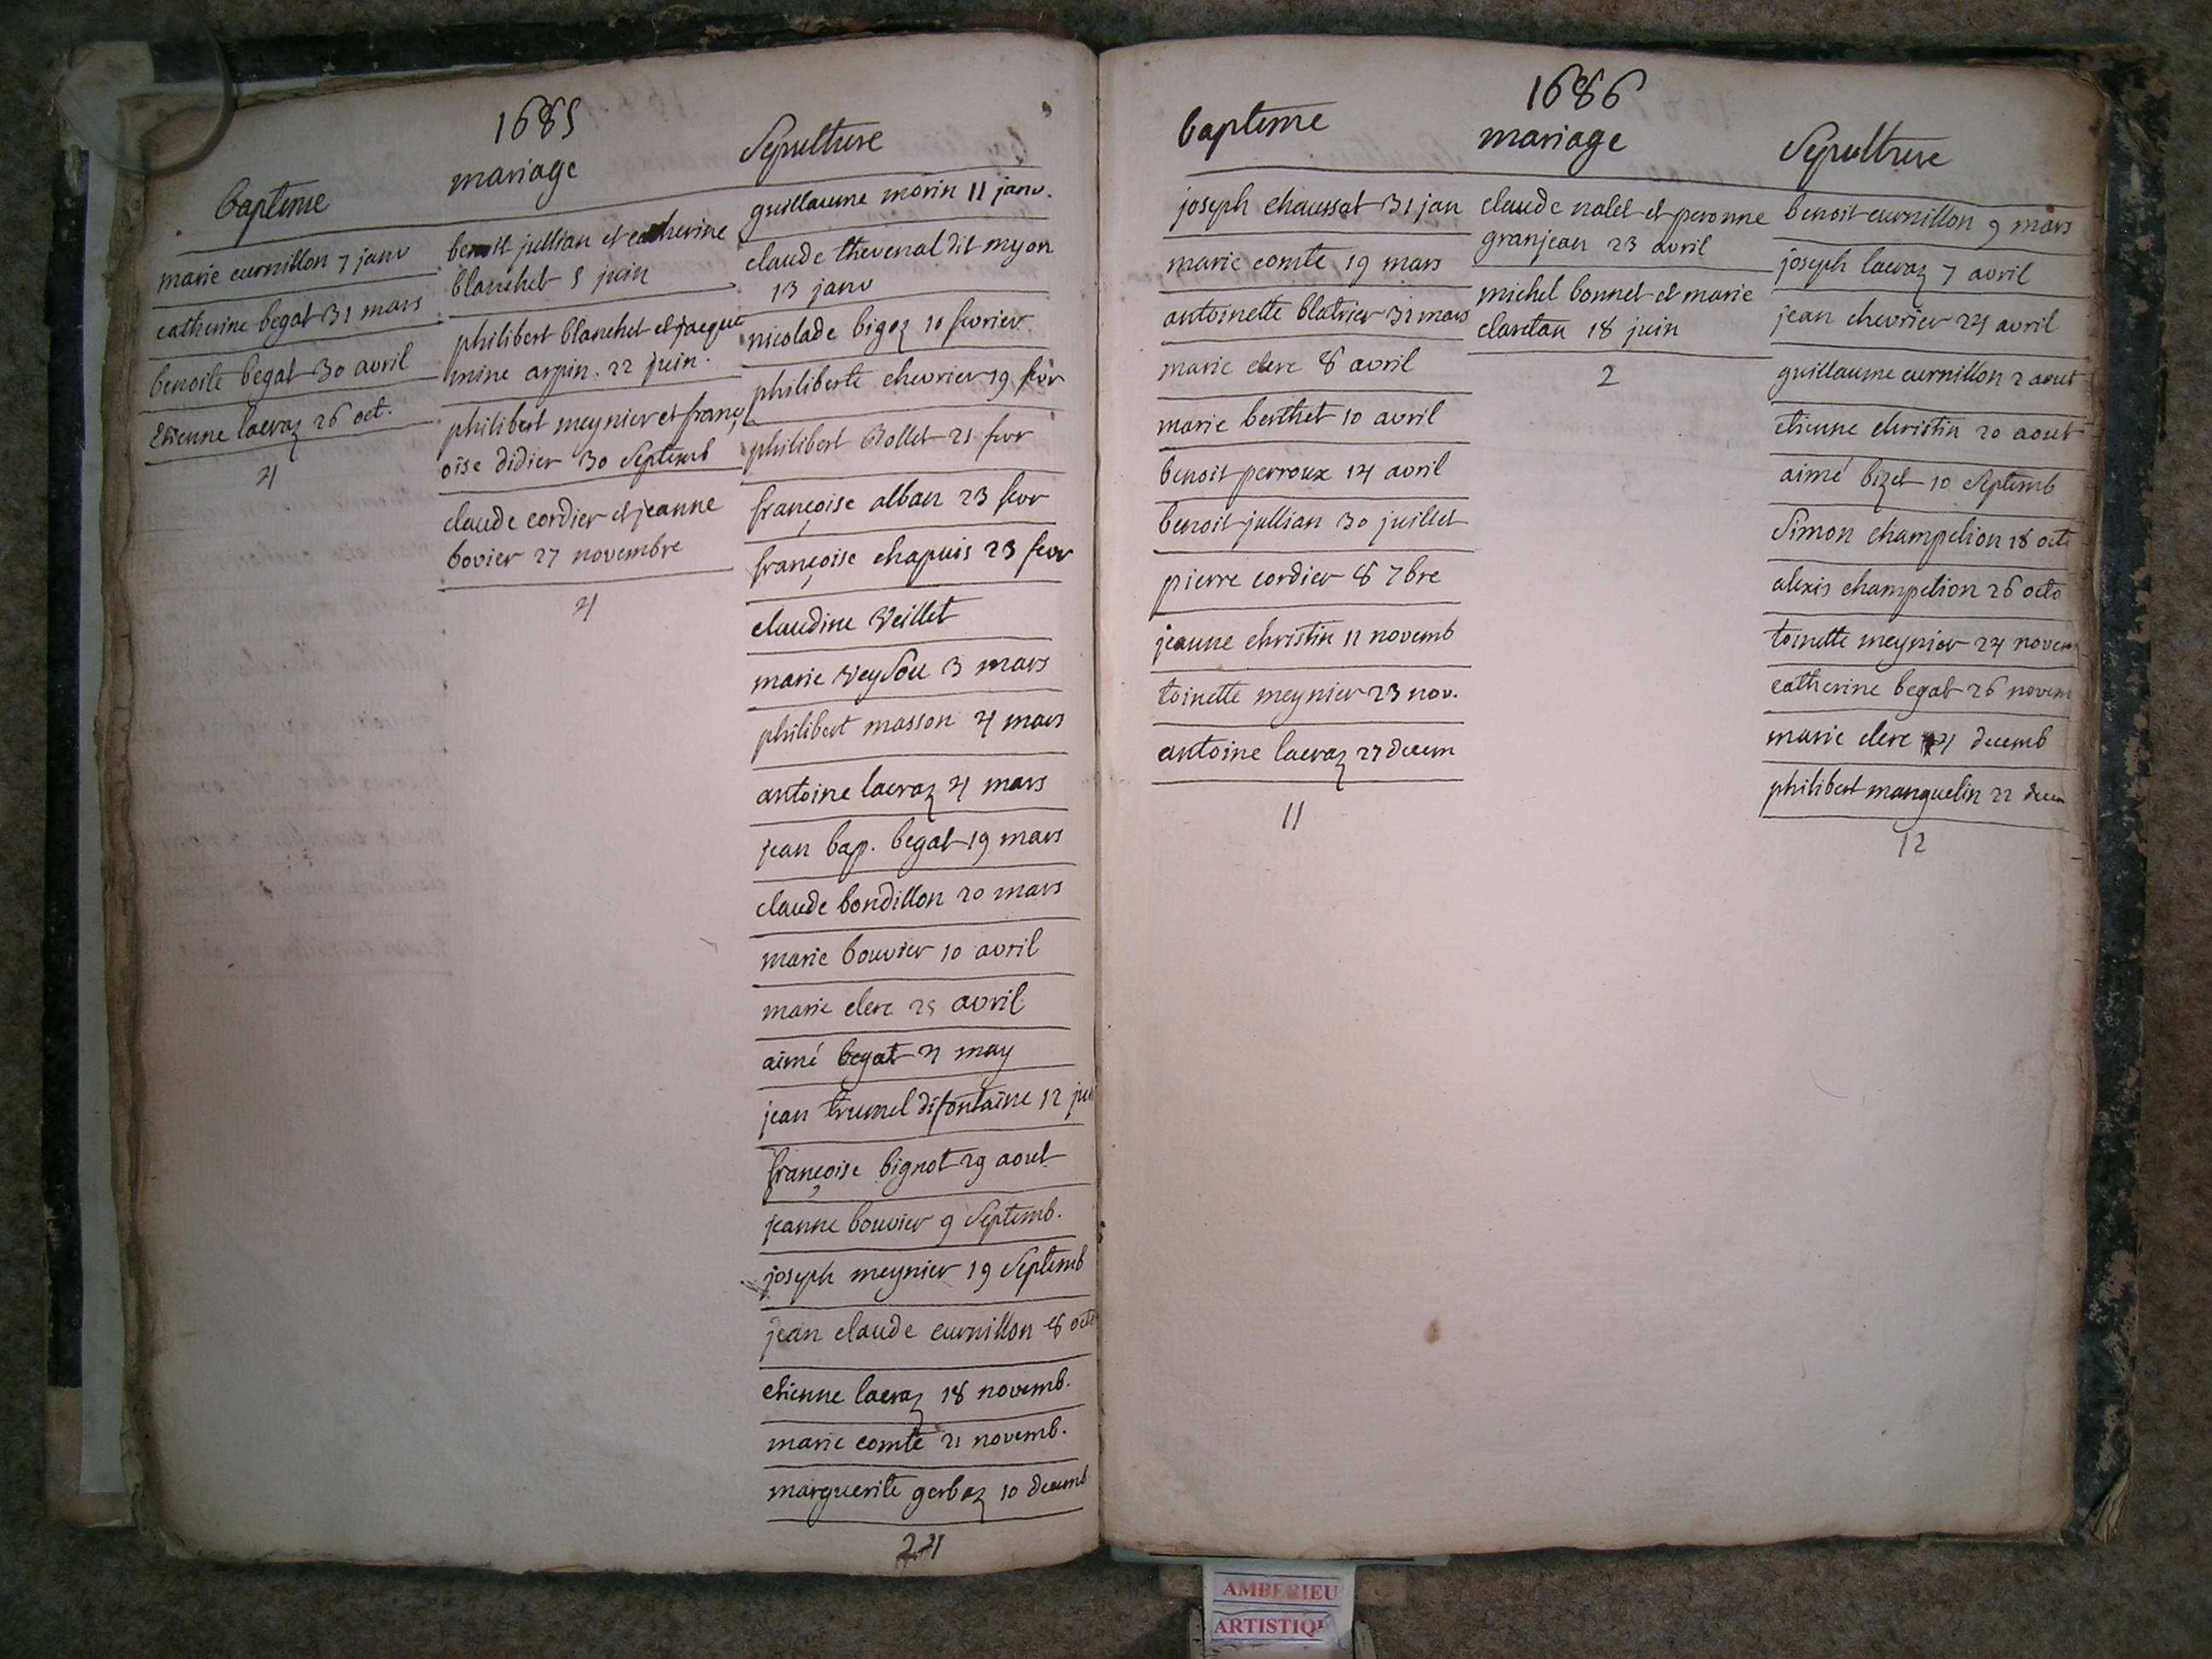 1685
bapteme
marie curnillon 7 janv
catherine begat 31 mars
benoite begat 30 avril
Etienne lacraz 26 oct.
4
mariage
benoit jullian et catherine
blanchet 5 juin
philibert blanchet et jacque
mine arpin. 22 juin.
philibert meynier et franç
oise didier 30 Septemb
claude cordier et jeanne
bovier 27 novembre
4
Sepulture
guillaume morin 11 janv.
claude thevenal dit myon
13 janv
nicolade bigoz 10 fevrier
philiberte chevrier 19 fevr
philibert Rollet 21 fevr
françoise alban 23 fevr
françoise chapuis 23 fevr
claudine Veillet
marie Veysou 3 mars
philibert masson 4 mars
antoine lacraz 4 mars
jean bap. begat 19 mars
claude bondillon 20 mars
marie bouvier 10 avril
marie clerc 25 avril
aimé begat 4 may
jean trumel difontaine 12 jui
françoise bignot 29 aout
jeanne bouvier 9 Septemb.
joseph meynier 19 Septemb
jean claude curnillon 8 octo
etienne lacraz 18 novemb.
marie comte 21 novemb.
marguerite gerbaz 10 decemb
24
1686
bapteme
joseph chaussat 31 jan
marie comte 19 mars
antoinette blatrier 31 mars
marie clerc 8 avril
marie berthet 10 avril
benoit perroux 14 avril
benoit jullian 30 juillet
pierre cordier 8 7bre
jeanne christin 11 novemb
toinette meynier 23 nov.
antoine lacraz 27 decem
11
mariage
claude nalet et peronne
granjean 23 avril
michel bonnet et marie
claretan 18 juin
2
Sepulture
benoit curnillon 9 mars
joseph lacraz 7 avril
jean chevrier 24 avril
guillaume curnillon 2 aout
etienne christin 20 aout
aimé bizet 10 Septemb
Simon champelion 18 octo
alexis champelion 26 octo
toinette meynier 24 novem
catherine begat 26 novem
marie clerc 4 decemb
philibert manguelin 22 decem
12
AMBERIEU
ARTISTIQU